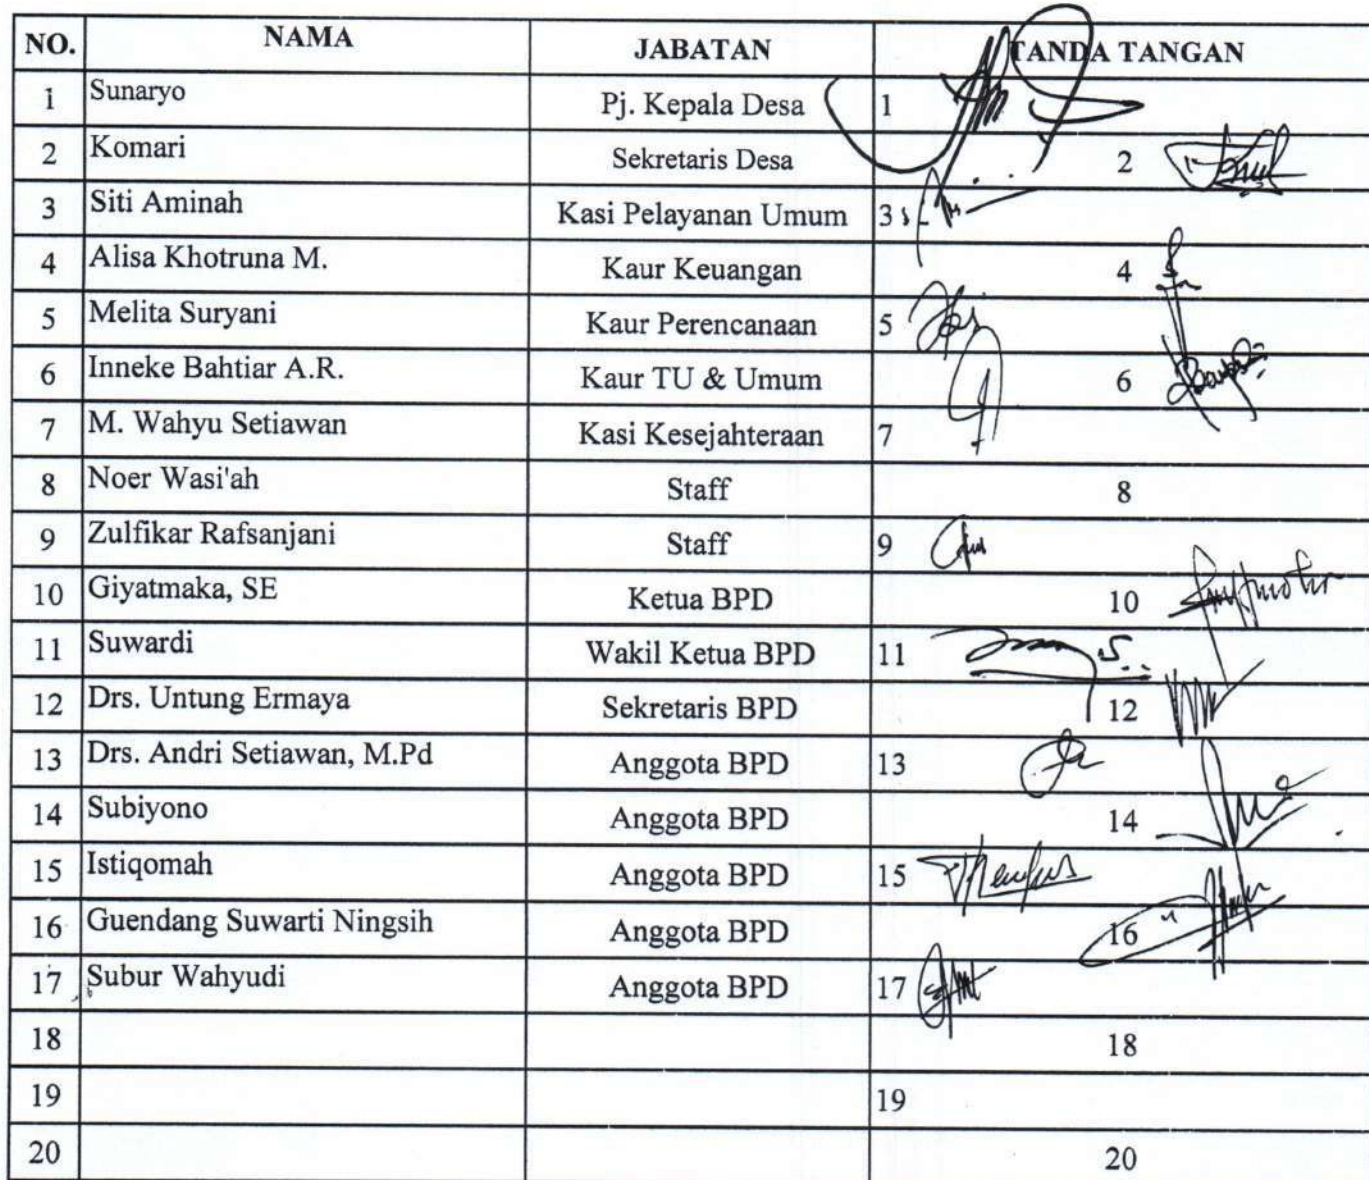 NO. NAMA JABATAN TANDA TANGAN
1 Sunaryo Pj. Kepala Desa 1
2 Komari Sekretaris Desa 2
3 Siti Aminah Kasi Pelayanan Umum 3
4 Alisa Khotruna M. Kaur Keuangan 4
5 Melita Suryani Kaur Perencanaan 5
6 Inneke Bahtiar A.R. Kaur TU & Umum 6
7 M. Wahyu Setiawan Kasi Kesejahteraan 7
8 Noer Wasi'ah Staff 8
9 Zulfikar Rafsanjani Staff 9
10 Giyatmaka, SE Ketua BPD 10
11 Suwardi Wakil Ketua BPD 11
12 Drs. Untung Ermaya Sekretaris BPD 12
13 Drs. Andri Setiawan, M.Pd Anggota BPD 13
14 Subiyono Anggota BPD 14
15 Istiqomah Anggota BPD 15
16 Guendang Suwarti Ningsih Anggota BPD 16
17 Subur Wahyudi Anggota BPD 17
18 18
19 19
20 20